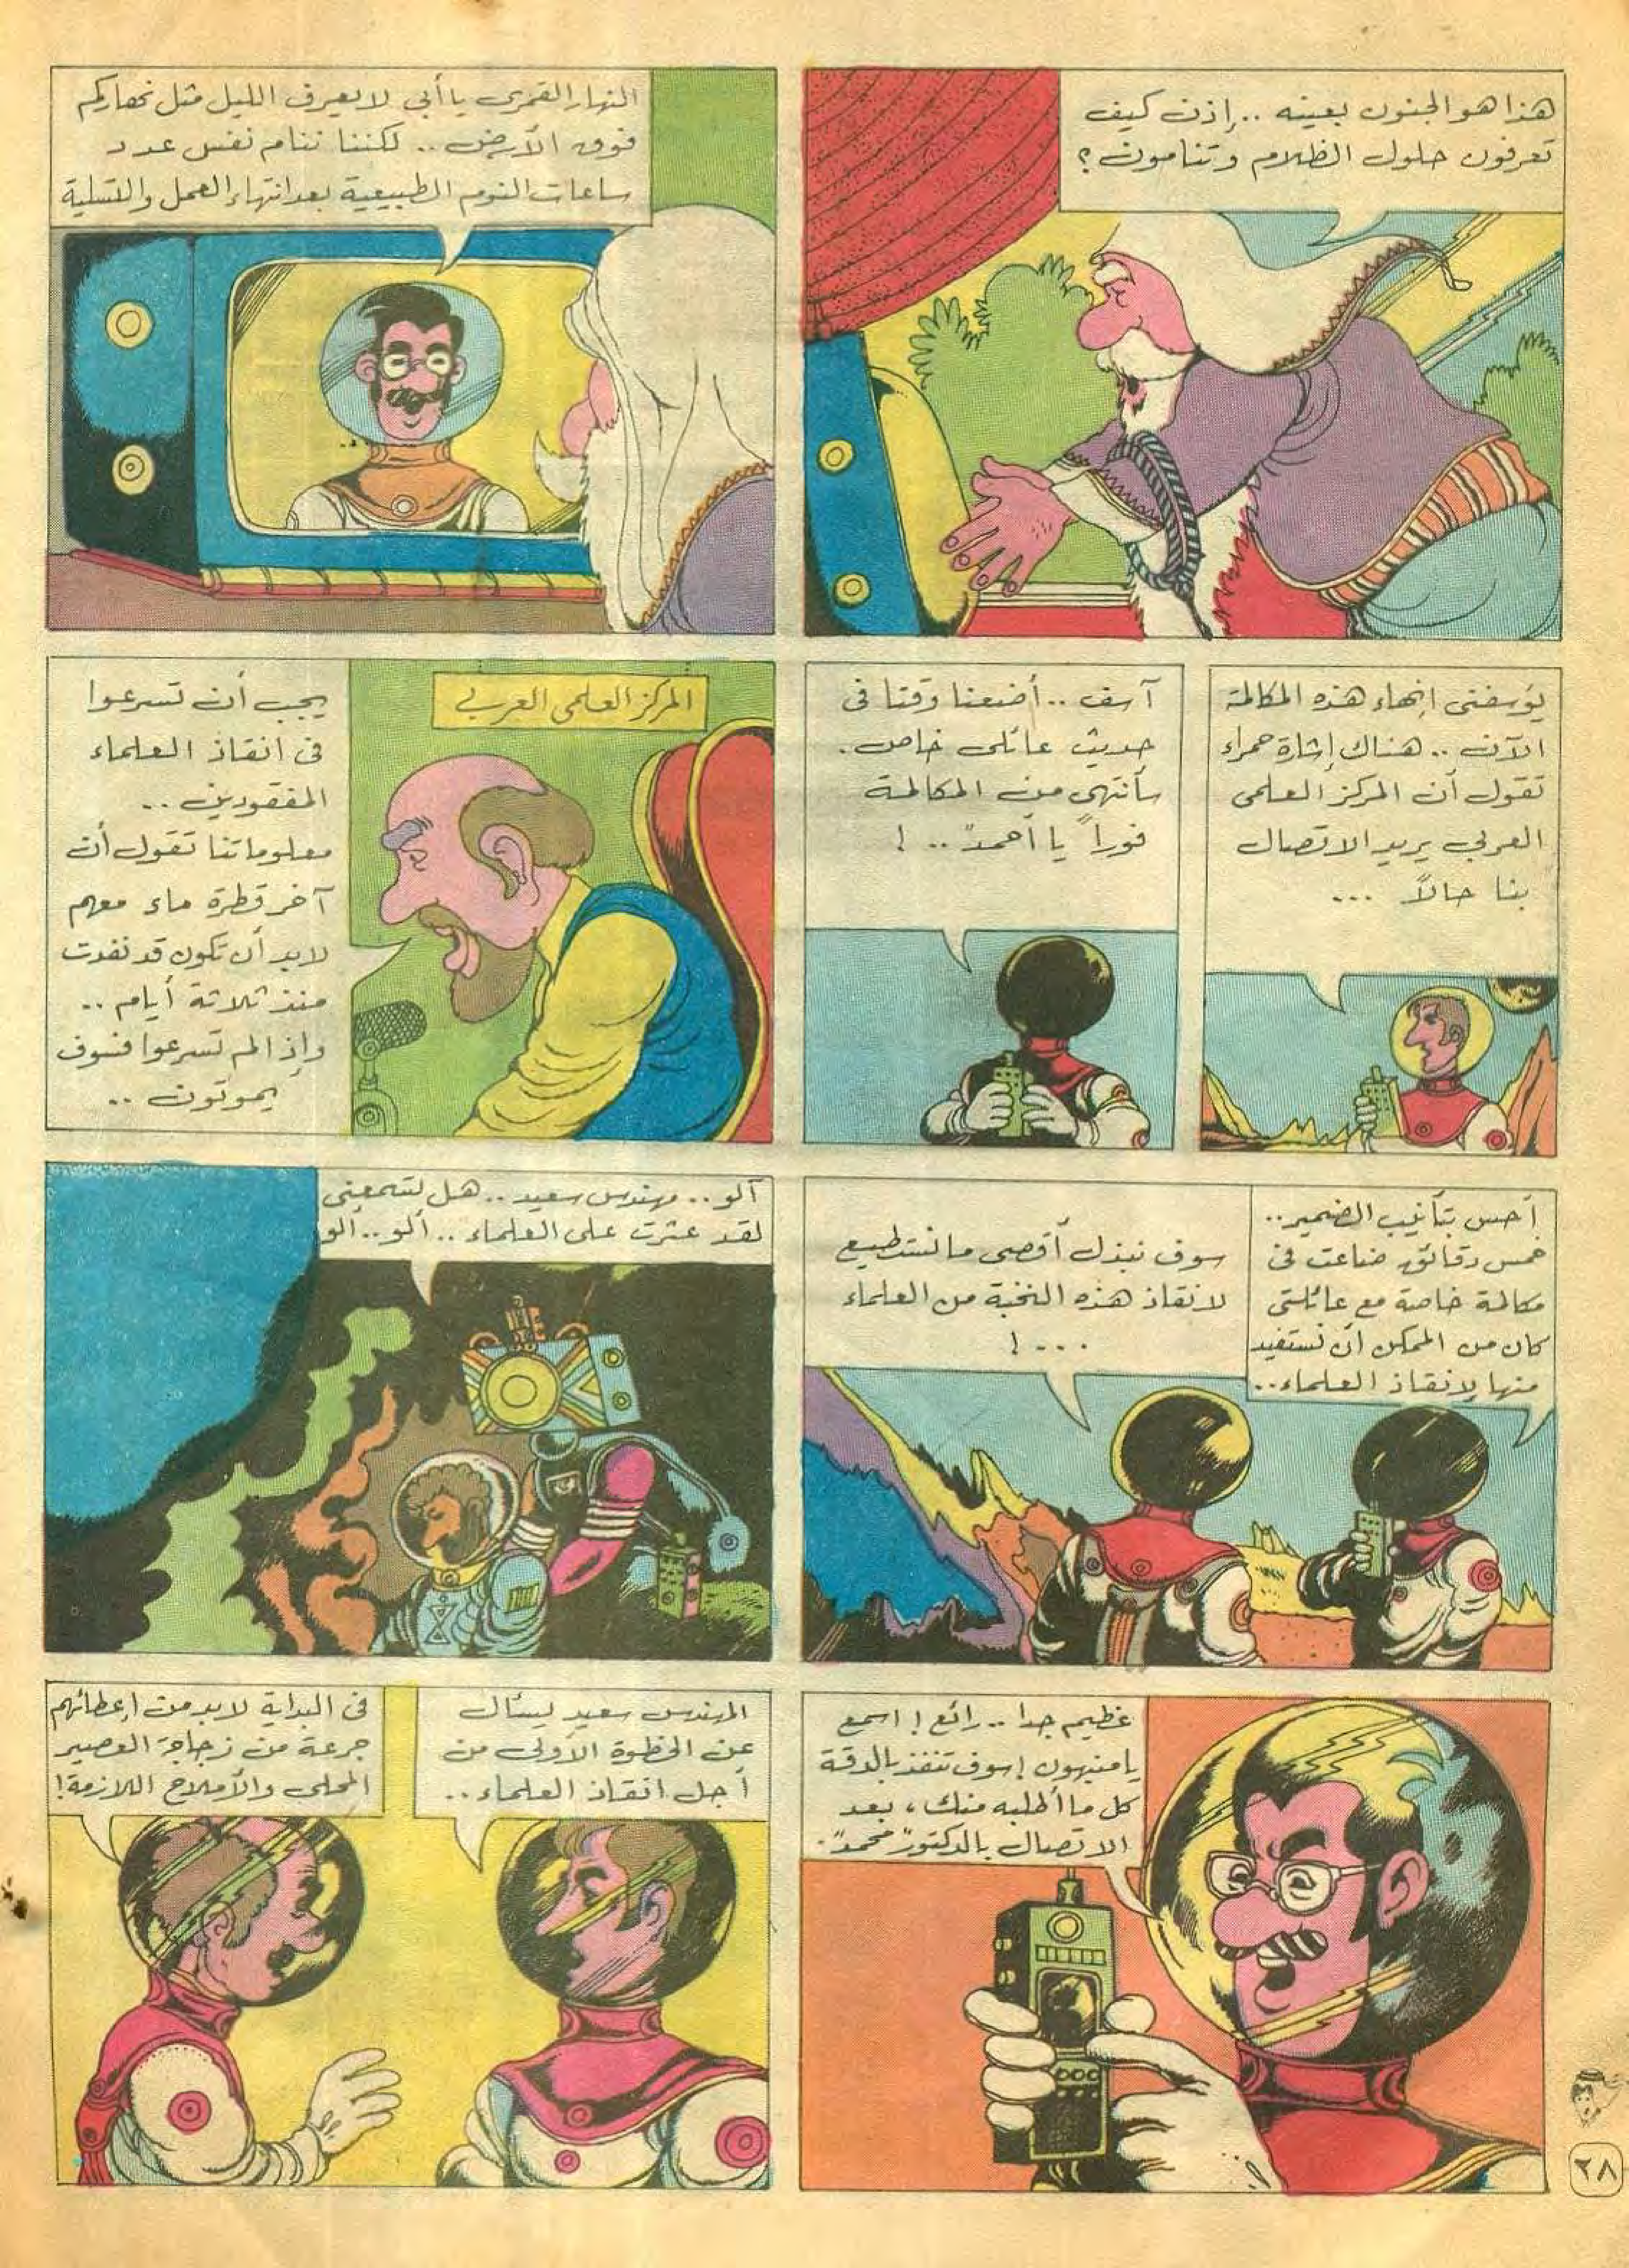 هذا هو الجنون بعينه .. إذن كيف
تعرفون حلول الظلام وتنامون ؟
النهار القمرى يا أبي لا يعرف الليل مثل نهاركم
فوق الأرض .. لكننا ننام نفس عدد
ساعات النوم الطبيعية بعد انتهاء العمل والتسلية
يؤسفنى إنهاء هذه المكالمة
الآن .. هناك إشارة حمراء
تقول أن المركز العلمى
العربي يريد الاتصال
بنا حالاً ...
آسف .. أضعنا وقتا فى
حديث عائلى خاص .
سأنتهى من المكالمة
فوراً يا أحمد .. !
المركز العلمى العربي
يجب أن تسرعوا
فى انقاذ العلماء
المفقودين ..
معلوماتنا تقول أن
آخر قطرة ماء معهم
لابد أن تكون قد نفدت
منذ ثلاثة أيام ..
وإذا لم تسرعوا فسوف
يموتون ..
أحس بتأنيب الضمير ..
خمس دقائق ضاعت فى
مكالمة خاصة مع عائلتى
كان من الممكن أن نستفيد
منها لانقاذ العلماء ..
سوف نبذل أقصى ما نستطيع
لانقاذ هذه النخبة من العلماء
... !
آلو .. مهندس سعيد .. هل تسمعنى
لقد عثرت على العلماء .. ألو .. ألو
عظيم جدا .. رائع ! اسمع
يا منبهون ! سوف تنفذ بالدقة
كل ما أطلبه منك ، بعد
الاتصال بالدكتور "محمد" .
المهندس سعيد يسأل
عن الخطوة الأولى من
أجل انقاذ العلماء ..
فى البداية لابد من إعطائهم
جرعة من زجاجة العصير
المحلى والأملاح اللازمة !
٢٨